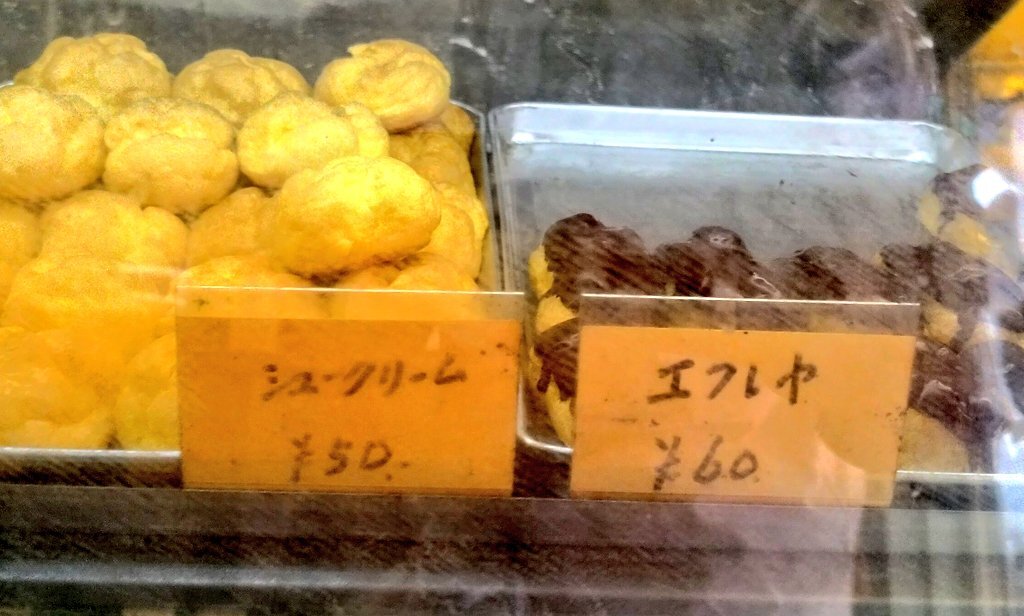 シュークリーム
¥50.
エフレヤ
¥60.